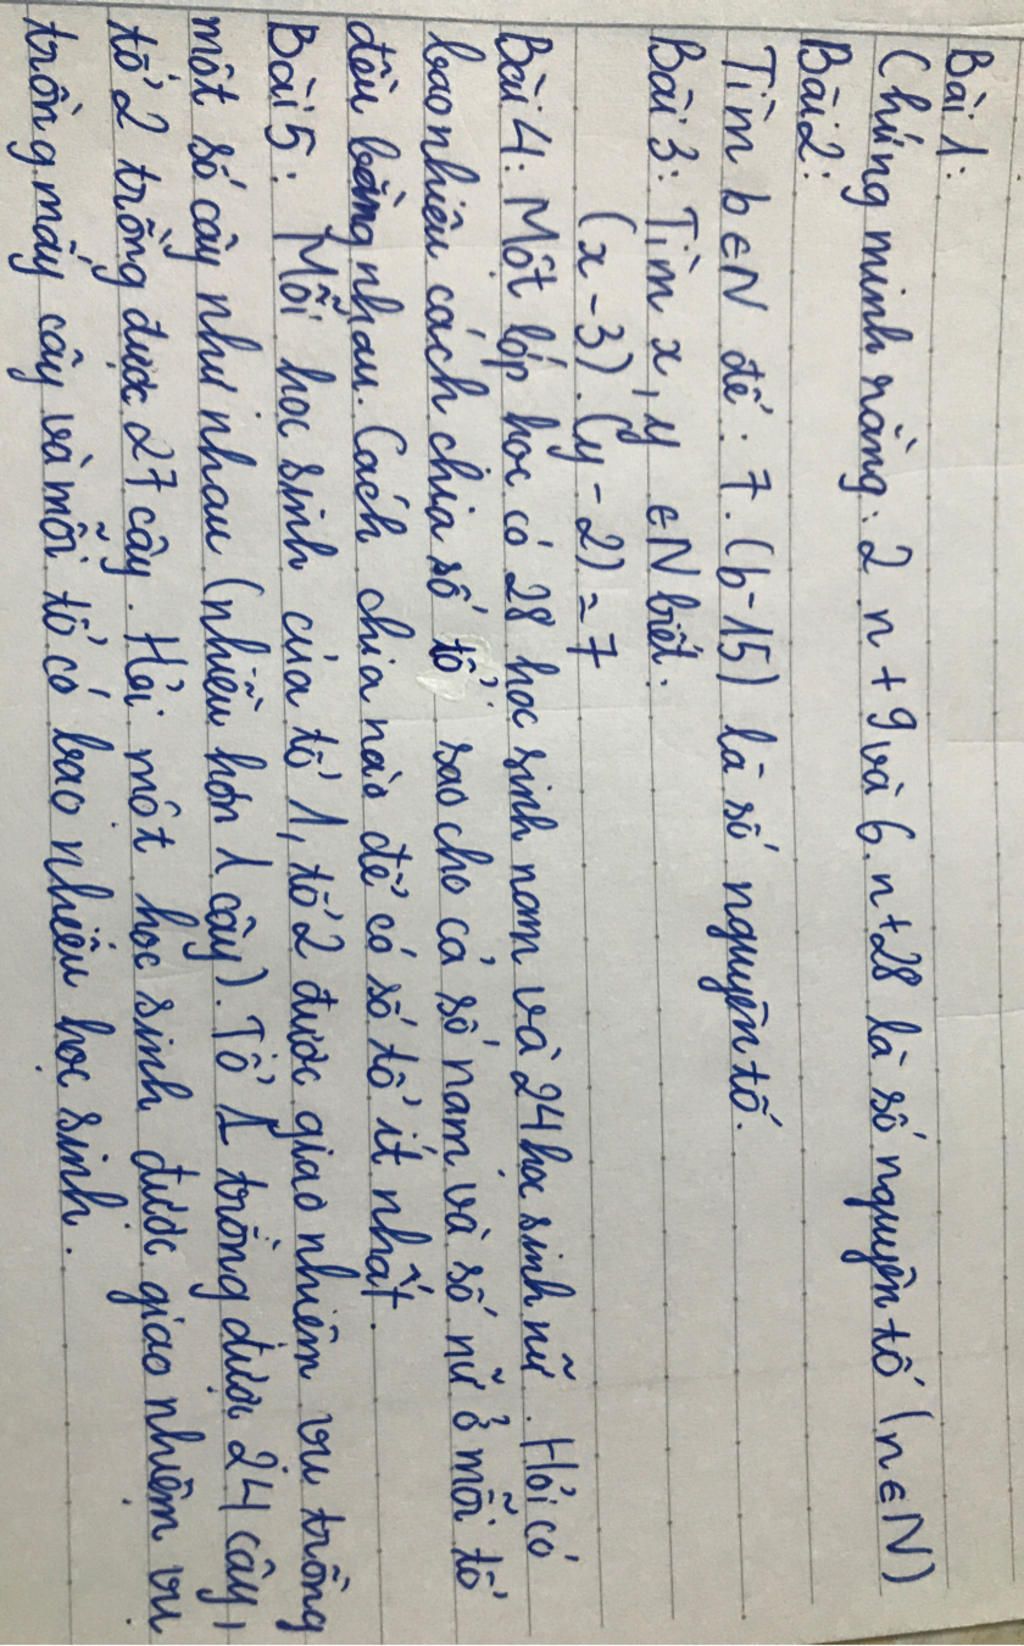 Bài 1:
Chứng minh rằng: 2.n+9 và 6.n+28 là số nguyên tố (n∈N)
Bài 2:
Tìm b∈N để: 7.(b-15) là số nguyên tố.
Bài 3: Tìm x, y ∈N biết:
(x-3).(y-2)=7
Bài 4: Một lớp học có 28 học sinh nam và 24 học sinh nữ. Hỏi có
bao nhiêu cách chia số tổ sao cho cả số nam và số nữ ở mỗi tổ
đều bằng nhau. Cách chia nào để có số tổ ít nhất.
Bài 5: Mỗi học sinh của tổ 1, tổ 2 được giao nhiệm vụ trồng
một số cây như nhau (nhiều hơn 1 cây). Tổ 1 trồng được 24 cây,
tổ 2 trồng được 27 cây. Hỏi một học sinh được giao nhiệm vụ
trồng mấy cây và mỗi tổ có bao nhiêu học sinh.